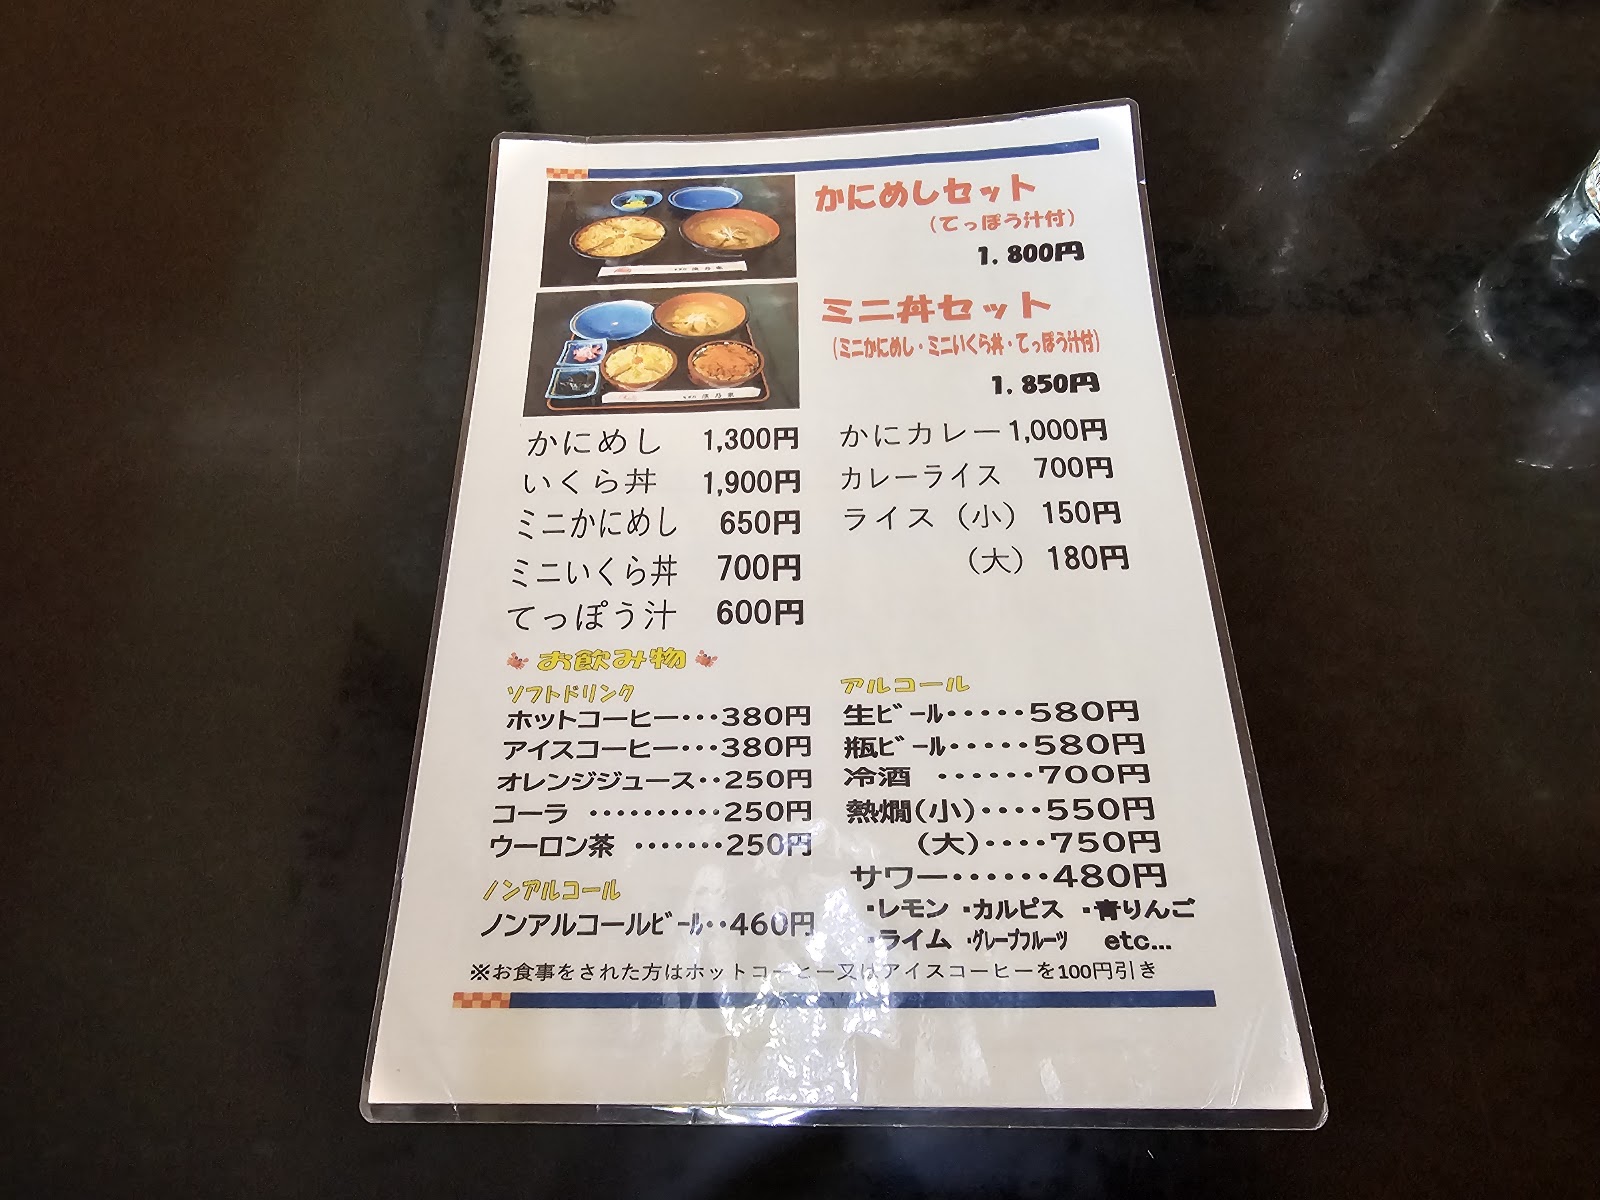 かにめしセット
(てっぽう汁付)
1.800円
ミニ丼セット
(ミニかにめし・ミニいくら丼・てっぽう汁付)
1.850円
かにめし 1,300円
いくら丼 1,900円
ミニかにめし 650円
ミニいくら丼 700円
てっぽう汁 600円
かにカレー 1,000円
カレーライス 700円
ライス（小） 150円
（大） 180円
お飲み物
ソフトドリンク
ホットコーヒー・・・380円
アイスコーヒー・・・380円
オレンジジュース・・250円
コーラ ・・・・・・・・・・250円
ウーロン茶 ・・・・・・・250円
ノンアルコール
ノンアルコールﾋﾞｰﾙ・・460円
アルコール
生ﾋﾞｰﾙ・・・・・580円
瓶ﾋﾞｰﾙ・・・・・580円
冷酒 ・・・・・・700円
熱燗(小)・・・・550円
(大)・・・・750円
サワー・・・・・・480円
・レモン ・カルピス ・青りんご
・ライム ・ｸﾞﾚｰﾌﾟﾌﾙｰﾂ etc...
※お食事をされた方はホットコーヒー又はアイスコーヒーを100円引き